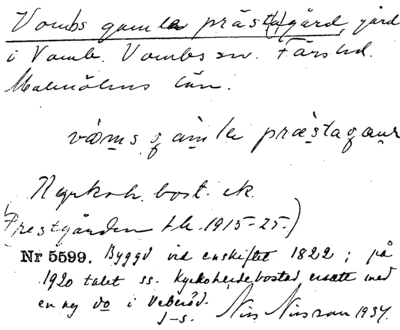 Vombs gamla präst(a)gård, gård
i Vomb. Vombs sn. Färs hd.
Malmöhus län.
våms gamla præstagaur
Kyrkoh. bost. ek.
(Prestgården hk. 1915-25.)
Nr 5599. Byggd vid enskiftet 1822; på
1920 talet ss. kyrkoherdebostad ersatt med
en ny do i Veberöd.
J-s. Nils Nilsson 1934.